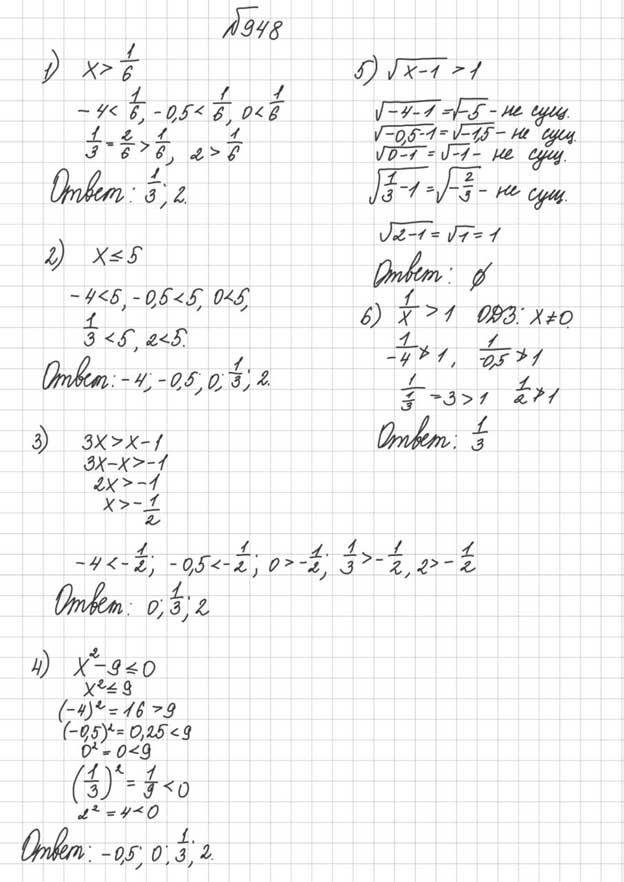 №948
1) x > 1/6
-4 < 1/6, -0,5 < 1/6, 0 < 1/6
1/3 = 2/6 > 1/6, 2 > 1/6
Ответ: 1/3; 2.
2) x ≤ 5
-4 < 5, -0,5 < 5, 0 < 5,
1/3 < 5, 2 < 5.
Ответ: -4; -0,5; 0; 1/3; 2.
3) 3x > x - 1
3x - x > -1
2x > -1
x > -1/2
-4 < -1/2; -0,5 < -1/2; 0 > -1/2; 1/3 > -1/2, 2 > -1/2
Ответ: 0; 1/3; 2
4) x² - 9 ≤ 0
x² ≤ 9
(-4)² = 16 > 9
(-0,5)² = 0,25 < 9
0² = 0 < 9
(1/3)² = 1/9 < 0
2² = 4 < 0
Ответ: -0,5; 0; 1/3; 2.
5) √(x-1) > 1
√(-4-1) = √(-5) - не сущ.
√(-0,5-1) = √(-1,5) - не сущ.
√(0-1) = √(-1) - не сущ.
√(1/3-1) = √(-2/3) - не сущ.
√(2-1) = √1 = 1
Ответ: ∅
6) 1/x > 1 ОДЗ: x ≠ 0
1/-4 ≯ 1, 1/-0,5 ≯ 1
1/(1/3) = 3 > 1 1/2 ≯ 1
Ответ: 1/3